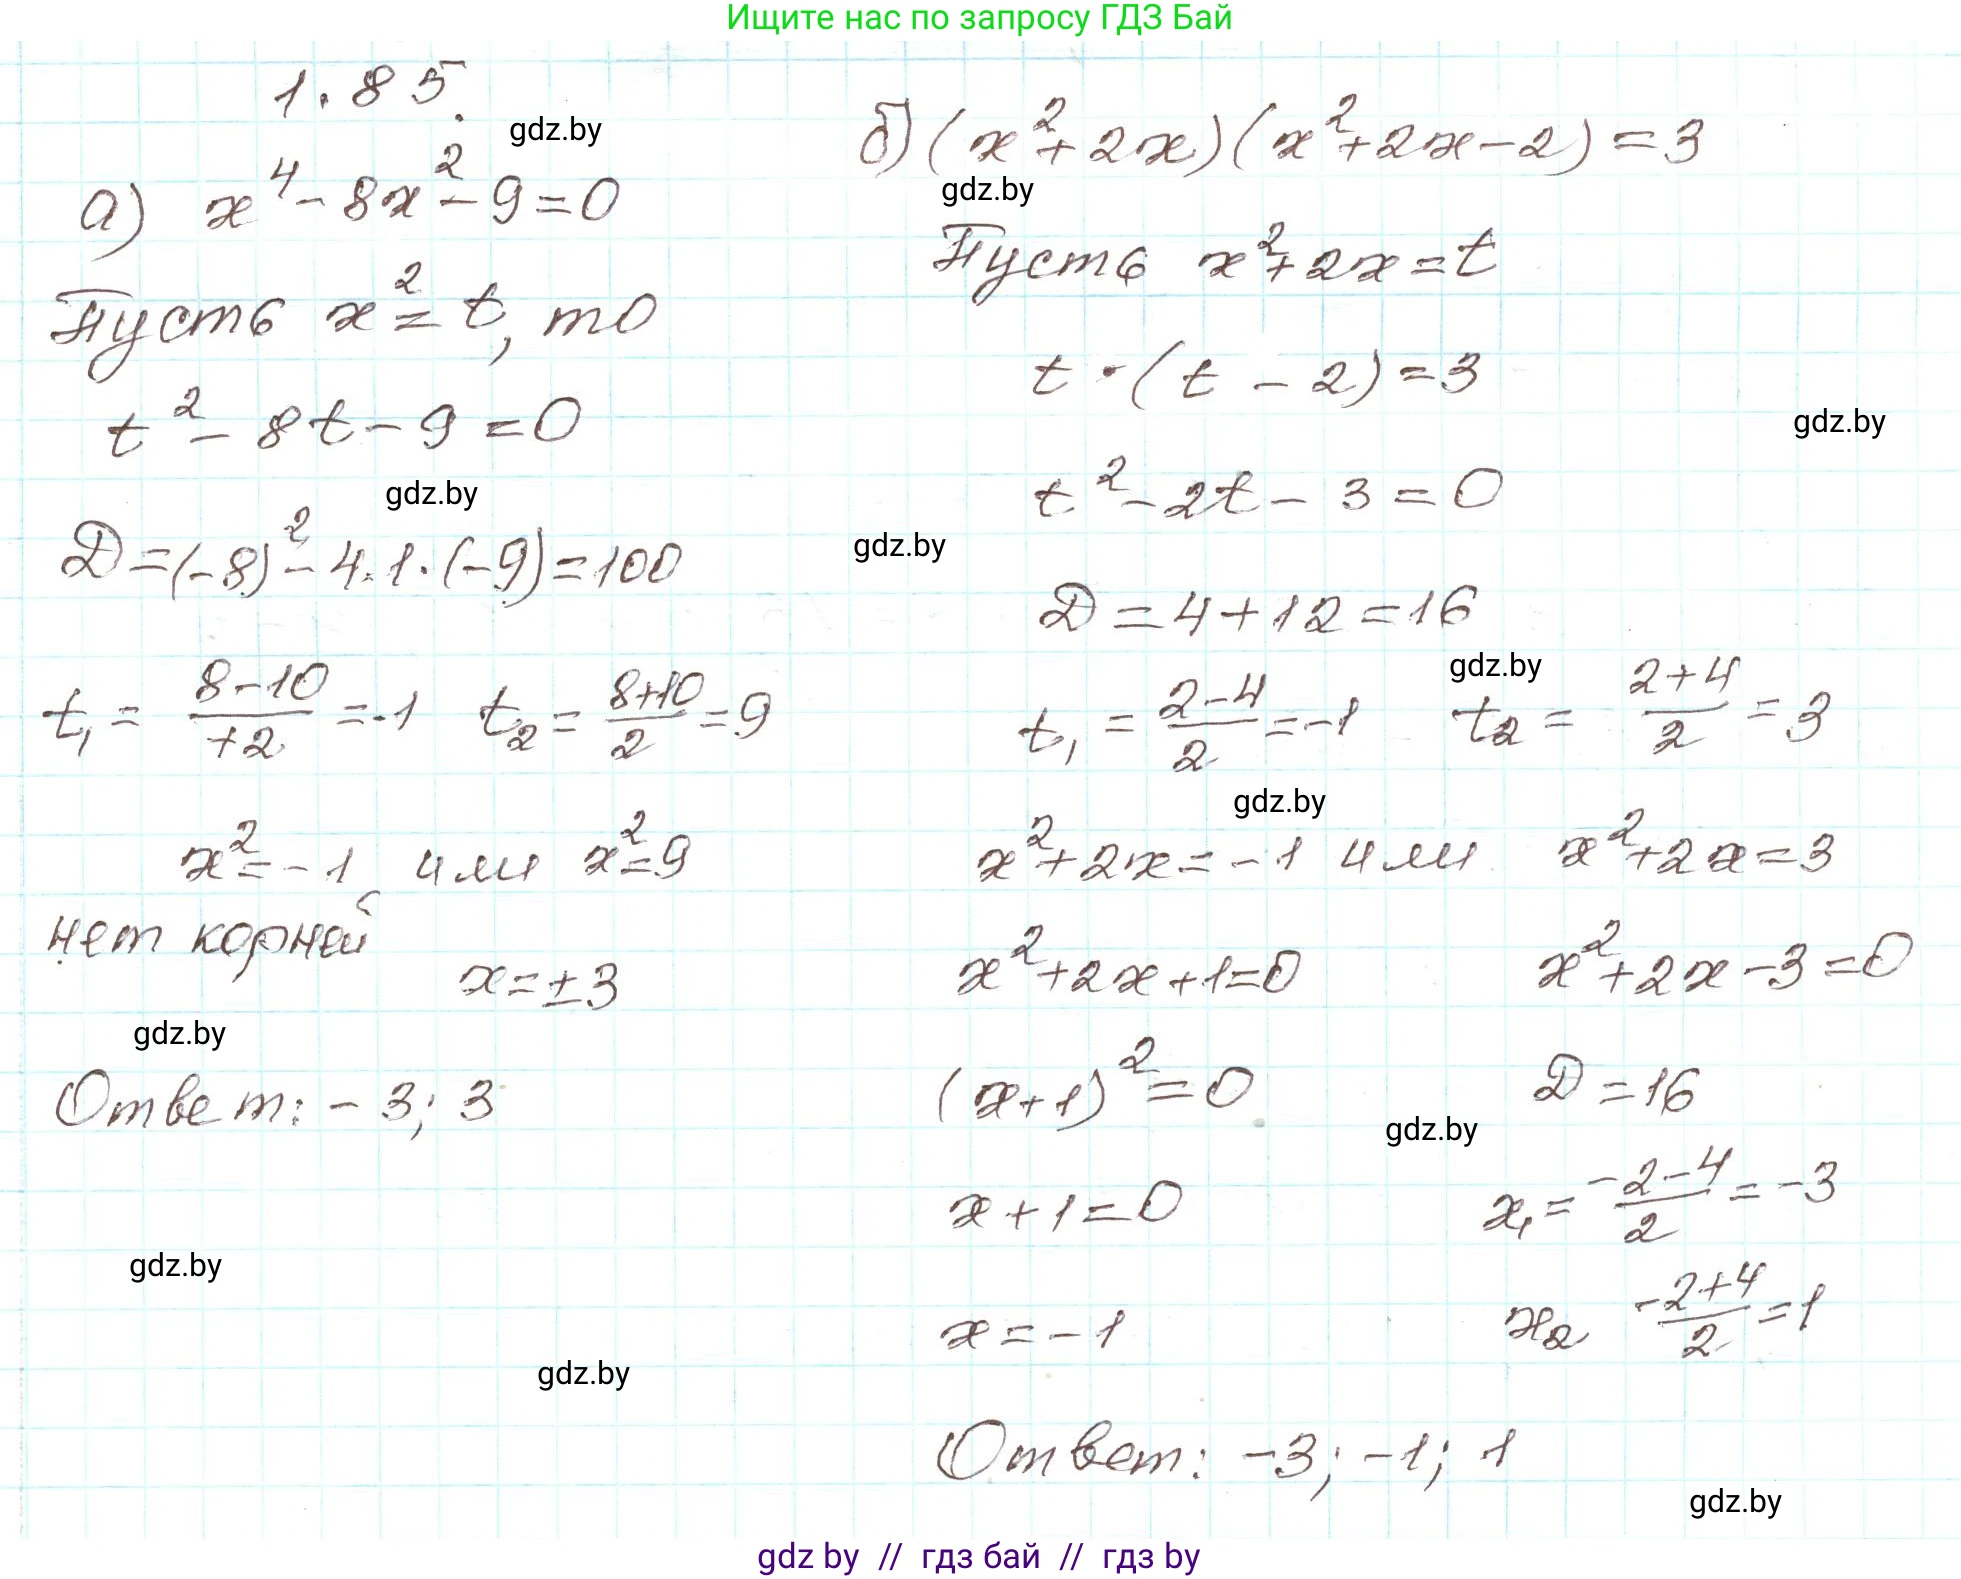 Ищите нас по запросу ГДЗ Бай
1.85.
gdz.by
а) x⁴ - 8x² - 9 = 0
Пусть x² = t, то
t² - 8t - 9 = 0
gdz.by
D = (-8)² - 4·1·(-9) = 100
t₁ = (8-10)/+2 = -1 t₂ = (8+10)/2 = 9
x² = -1 или x² = 9
нет корней
x = ±3
gdz.by
Ответ: -3; 3
gdz.by
gdz.by
б) (x² + 2x)(x² + 2x - 2) = 3
gdz.by
Пусть x² + 2x = t
t · (t - 2) = 3
gdz.by
t² - 2t - 3 = 0
gdz.by
D = 4 + 12 = 16
gdz.by
t₁ = (2-4)/2 = -1 t₂ = (2+4)/2 = 3
gdz.by
x² + 2x = -1 или x² + 2x = 3
x² + 2x + 1 = 0 x² + 2x - 3 = 0
(x+1)² = 0 D = 16
gdz.by
x + 1 = 0 x₁ = (-2-4)/2 = -3
x = -1 x₂ (-2+4)/2 = 1
Ответ: -3; -1; 1
gdz.by
gdz by // гдз бай // гдз by